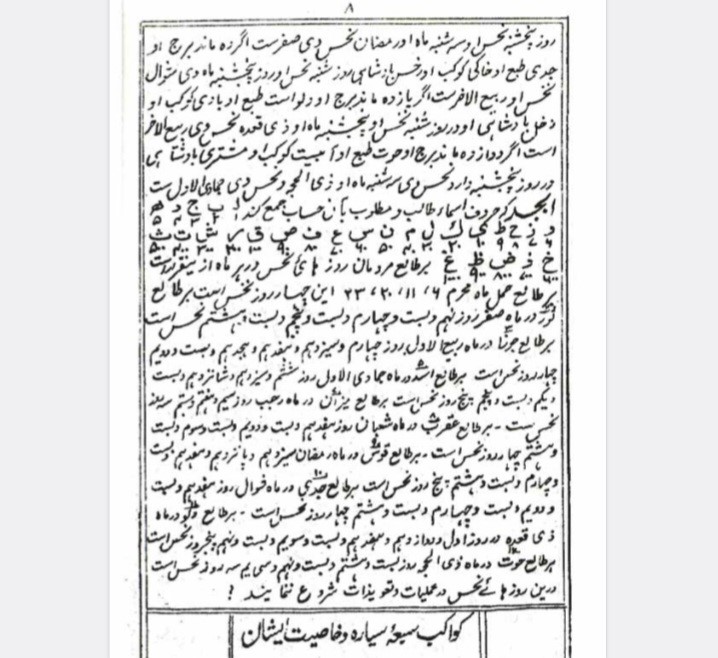 ۸
روز پنجشنبه نحس او سه شنبه ماه اور مضان نحس دی صفرست اگر ده ماند برج او
جدی طبع او خاکی کوکب اور حسن بادشاهی روز شنبه نحس او روز پنجشنبه ماه دی شوال
نحس او ربیع الاخرست اگر یازده ماند برج او دلو است طبع او بادی کوکب او
زحل بادشاهی او در روز شنبه نحس او پنجشنبه ماه او ذی قعده نحس دی ربیع الاخر
است اگر دوازده ماند برج او حوت طبع او آبیست کوکب او مشتری بادشاهی
در روز پنجشنبه دارد نحس دی سه شنبه ماه او ذی الحجه و نحس دی جمادی الاول ست
ابجد که حروف اسماء طالب و مطلوب بآن حساب جمع کند ا ب ج د ه
و ز ح ط ی ک ل م ن س ع ف ص ق ر ش ت ث
خ ذ ض ظ غ بر طالع مردمان روز های نحس در هر ماه ازینقرارست
بر طالع حمل ماه محرم ۶، ۱۱، ۲۰، ۲۳ این چهار روز نحس است بر طالع
ثور در ماه صفر روز نهم و بست و چهارم و بست و پنجم و بست و هشتم نحس است
بر طالع جوزا در ماه ربیع الاول روز چهارم و سیزدهم و هفدهم و هجدهم و بست و دویم
چهار روز نحس است بر طالع اسد در ماه جمادی الاول روز ششم و سیزدهم و شانزدهم و بست
و یکم و بست و پنجم پنج روز نحس است بر طالع میزان در ماه رجب روز سیم و هفتم و بستم سه روز
نحس ست - بر طالع عقرب در ماه شعبان روز هفدهم و بست و دویم و بست و سوم و بست
و هشتم چهار روز نحس است - بر طالع قوس در ماه رمضان سیزدهم و پانزدهم و هفدهم و بست
و چهارم و بست و هشتم پنج روز نحس است بر طالع جدی در ماه شوال روز هفدهم و بست
و دویم و بست و چهارم و بست و هشتم چهار روز نحس است - بر طالع دلو در ماه
ذی قعده در روز اول و دوازدهم و هفدهم و بست و سویم و بست و نهم پنج روز نحس است
بر طالع حوت در ماه ذی الحجه روز بست و هشتم و بست و نهم و سی یم سه روز نحس است
درین روز هائے نحس در عملیات و تعویذات شروع نمایند ؟
کواکب سبعهٔ سیاره و خاصیت ایشان